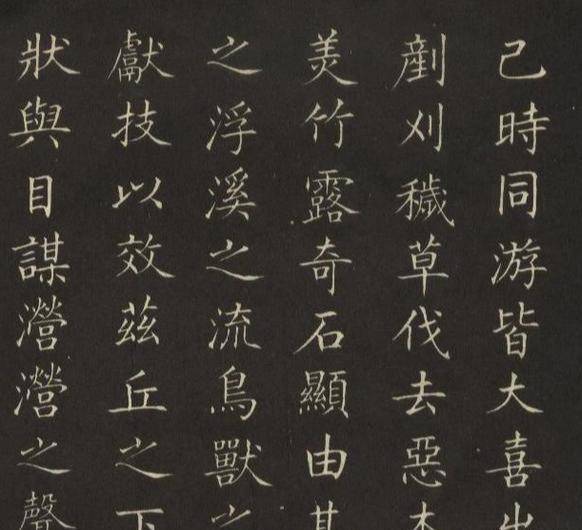 己時同游皆大喜出
剷刈穢草伐去惡木
美竹露奇石顯由其
之浮溪之流鳥獸之
獻技以效茲丘之下
狀與目謀瀯瀯之聲